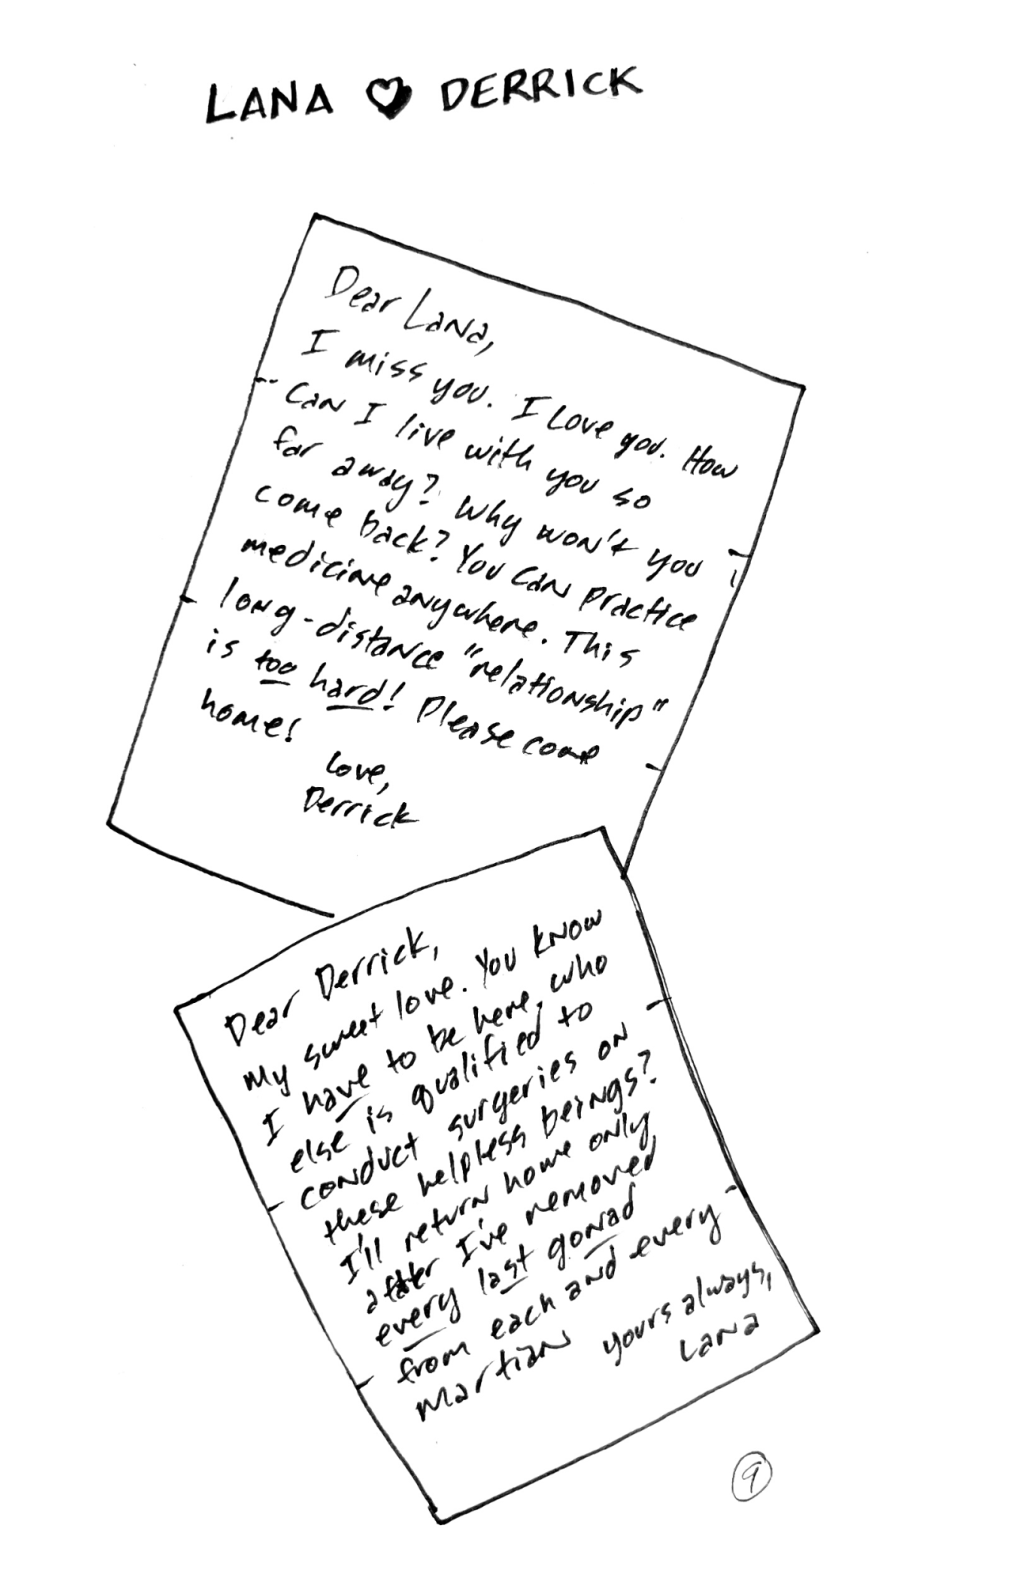 LANA ♥ DERRICK
Dear Lana,
I miss you. I love you. How
can I live with you so
far away? Why won't you
come back? You can practice
medicine anywhere. This
long-distance "relationship"
is too hard! Please come
home!
Love,
Derrick
Dear Derrick,
My sweet love. You know
I have to be here, who
else is qualified to
conduct surgeries on
these helpless beings?
I'll return home only
after I've removed
every last gonad
from each and every
Martian
yours always,
Lana
9